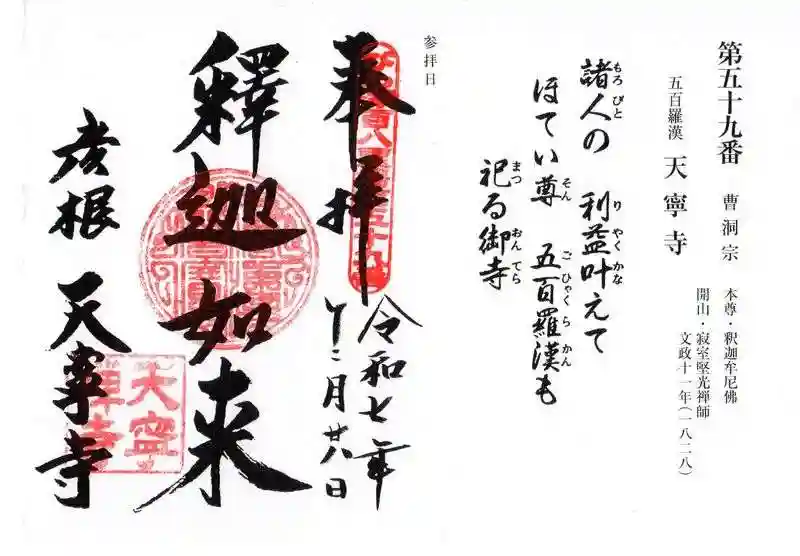 第五十九番 曹洞宗 本尊・釈迦牟尼佛
開山・寂室堅光禅師
五百羅漢 天寧寺 文政十一年(一八二八)
諸人の 利益叶えて
もろ びと り やく かな
ほてい尊 五百羅漢も
そん ご ひゃく ら かん
祀る御寺
まつ おん てら
参拝日
奉拝 令和七年
十二月廿八日
釋迦如来
彦根 天寧寺
天寧
禅寺